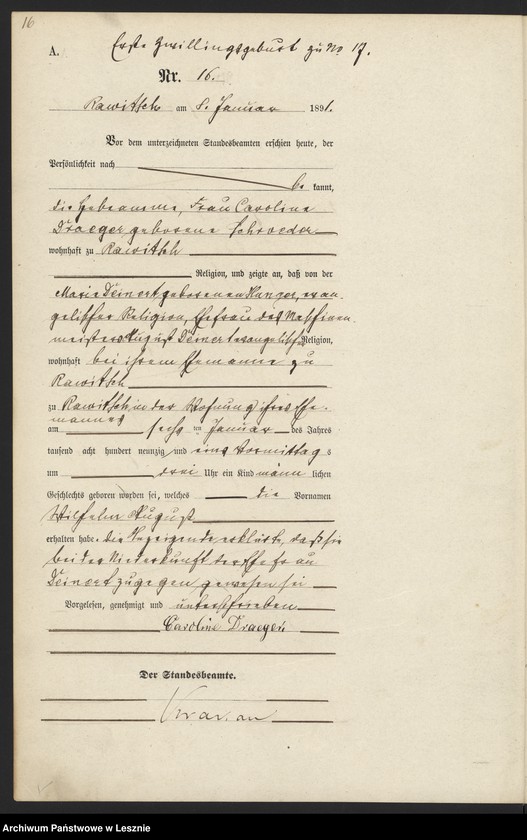 16
A.
Erste Zwillingsgeburt zu No 17.
Nr. 16.
Rawitsch am 8. Januar 1891.
Vor dem unterzeichneten Standesbeamten erschien heute, der
Persönlichkeit nach
be kannt,
die Hebeamme, Frau Caroline
Draeger geborene Schroeder
wohnhaft zu Rawitsch
Religion, und zeigte an, daß von der
Marie Deinert geborenen evan
gelischer Religion, Ehefrau des Maschinen
meisters August Deinert evangelischer Religion,
wohnhaft bei ihrem Ehemanne zu
Rawitsch
zu Rawitsch in der Wohnung ihres Ehe-
mannes
am sechs ten Januar des Jahres
tausend acht hundert neunzig und eins Vormittag s
um drei Uhr ein Kind männ lichen
Geschlechts geboren worden sei, welches die Vornamen
Wilhelm August
erhalten habe. Die Anzeigende erklärte, daß sie
bei der Niederkunft der Ehefrau
Deinert zugegen gewesen sei
Vorgelesen, genehmigt und unterschrieben
Caroline Draeger
Der Standesbeamte.
Archiwum Państwowe w Lesznie